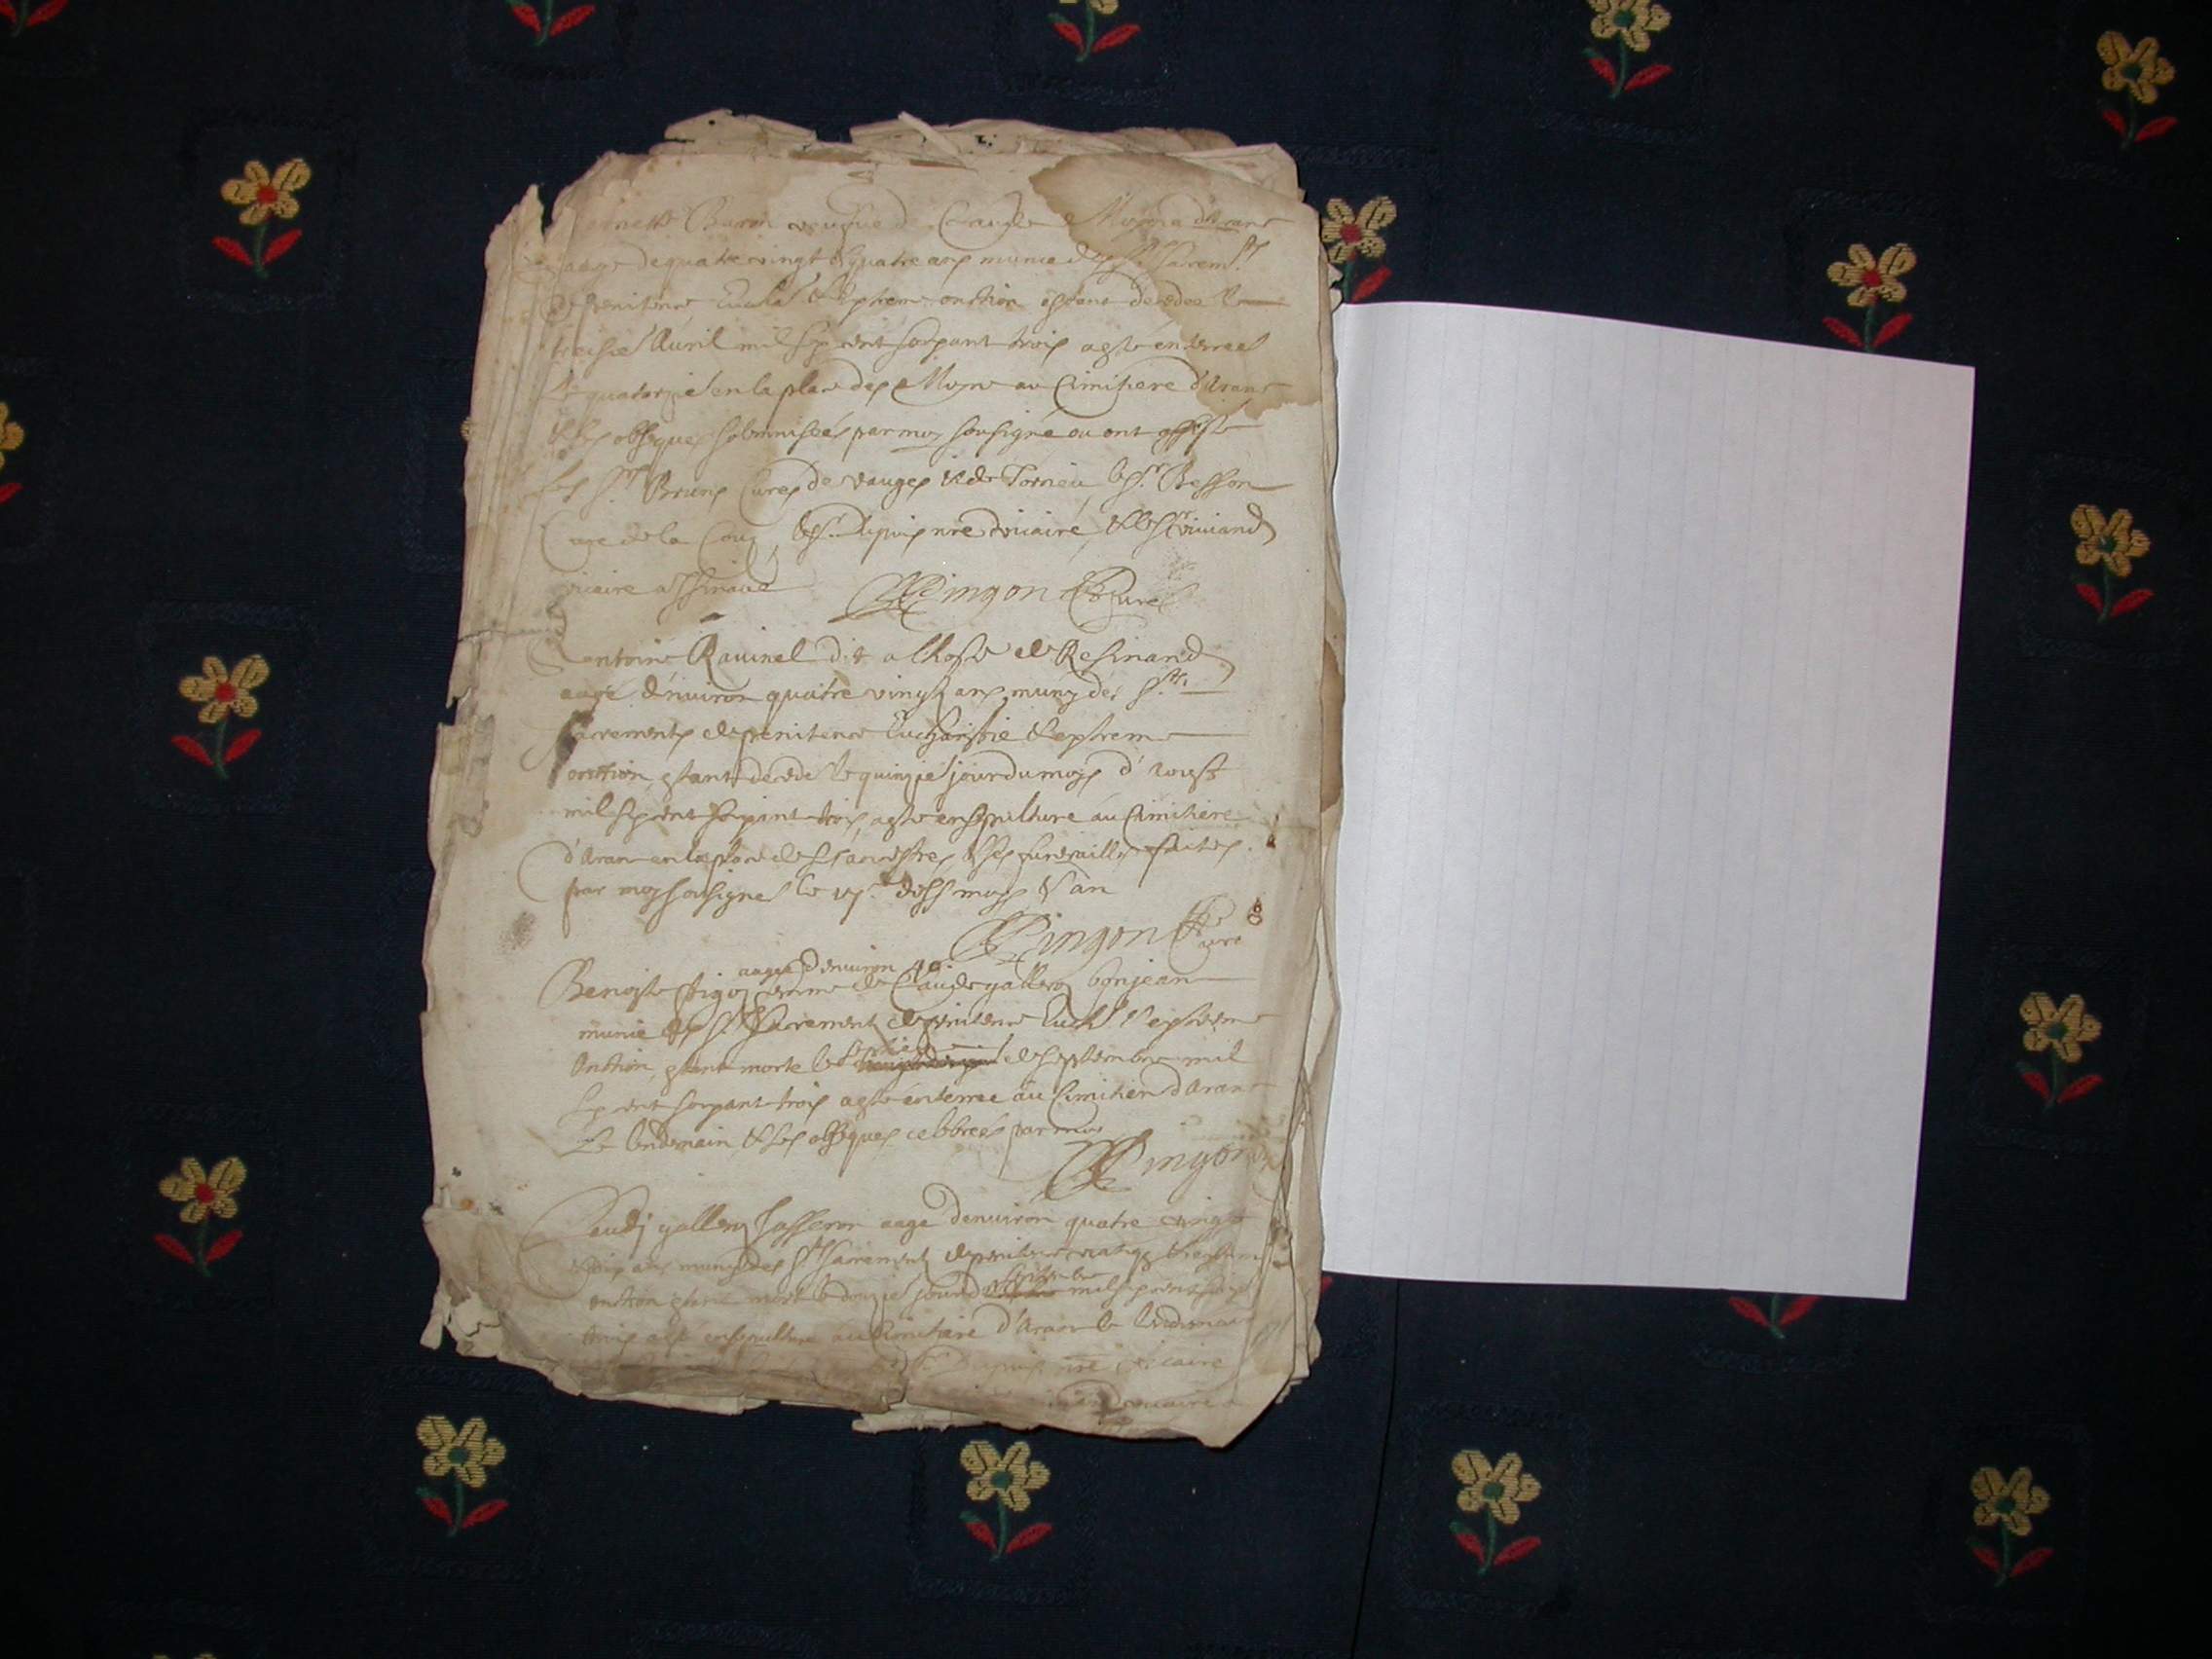 Baron de Claude Moyne d'Arane
aage de quatre vingt & quatre ans munie des Sts Sacremts
de penitence Eucha & extreme onction estant decedee le
treisie Auril mil sixcent soixante trois a esté enterree
le quatorzie en la place des Moyne au Cimitiere d'Arane
& ses obseques solemnisées par moy soussigné ou ont assisté
les Srs Bruns Cures de & de Torcieu le Sr Besson
Curé de la le Sr Dupuis nre vicaire & le Sr Viuiand
vicaire
Pingon Curé
Antoine Rauinel dit a l'hoste de Resinand
aagé d'enuiron quatre vingt ans muny des Sts
Sacrements de penitence Eucharistie & extreme
onction, estant decedé le quinzie jour du moys d'Aoust
mil sixcent soixante trois, a esté ensepulturé au Cimitiere
d'Arane en la place de ses ancestres & ses funerailles faites
par moy soussigné le moys & an
Pingon Curé
aagee d'enuiron 40
Benoiste femme de Claude gallero bonjean
munie des Sts Sacrements de penitence Euch & extreme
Onction, estant morte le de septembre mil
sixcent soixante trois a esté enterree au Cimitiere d'Arane
Le lendemain & ses obseques celebrées par moy
Pingon
Claudj aagé d'enuiron quatre vingt
& dix ans muny des Sts Sacrements de penitence & extreme
septembre
onction estant mort le douzie jour de mil sixcent soix
trois a esté ensepulturé au Cimitiere d'Arane le lendemain
Dupuis nre vicaire
vicaire